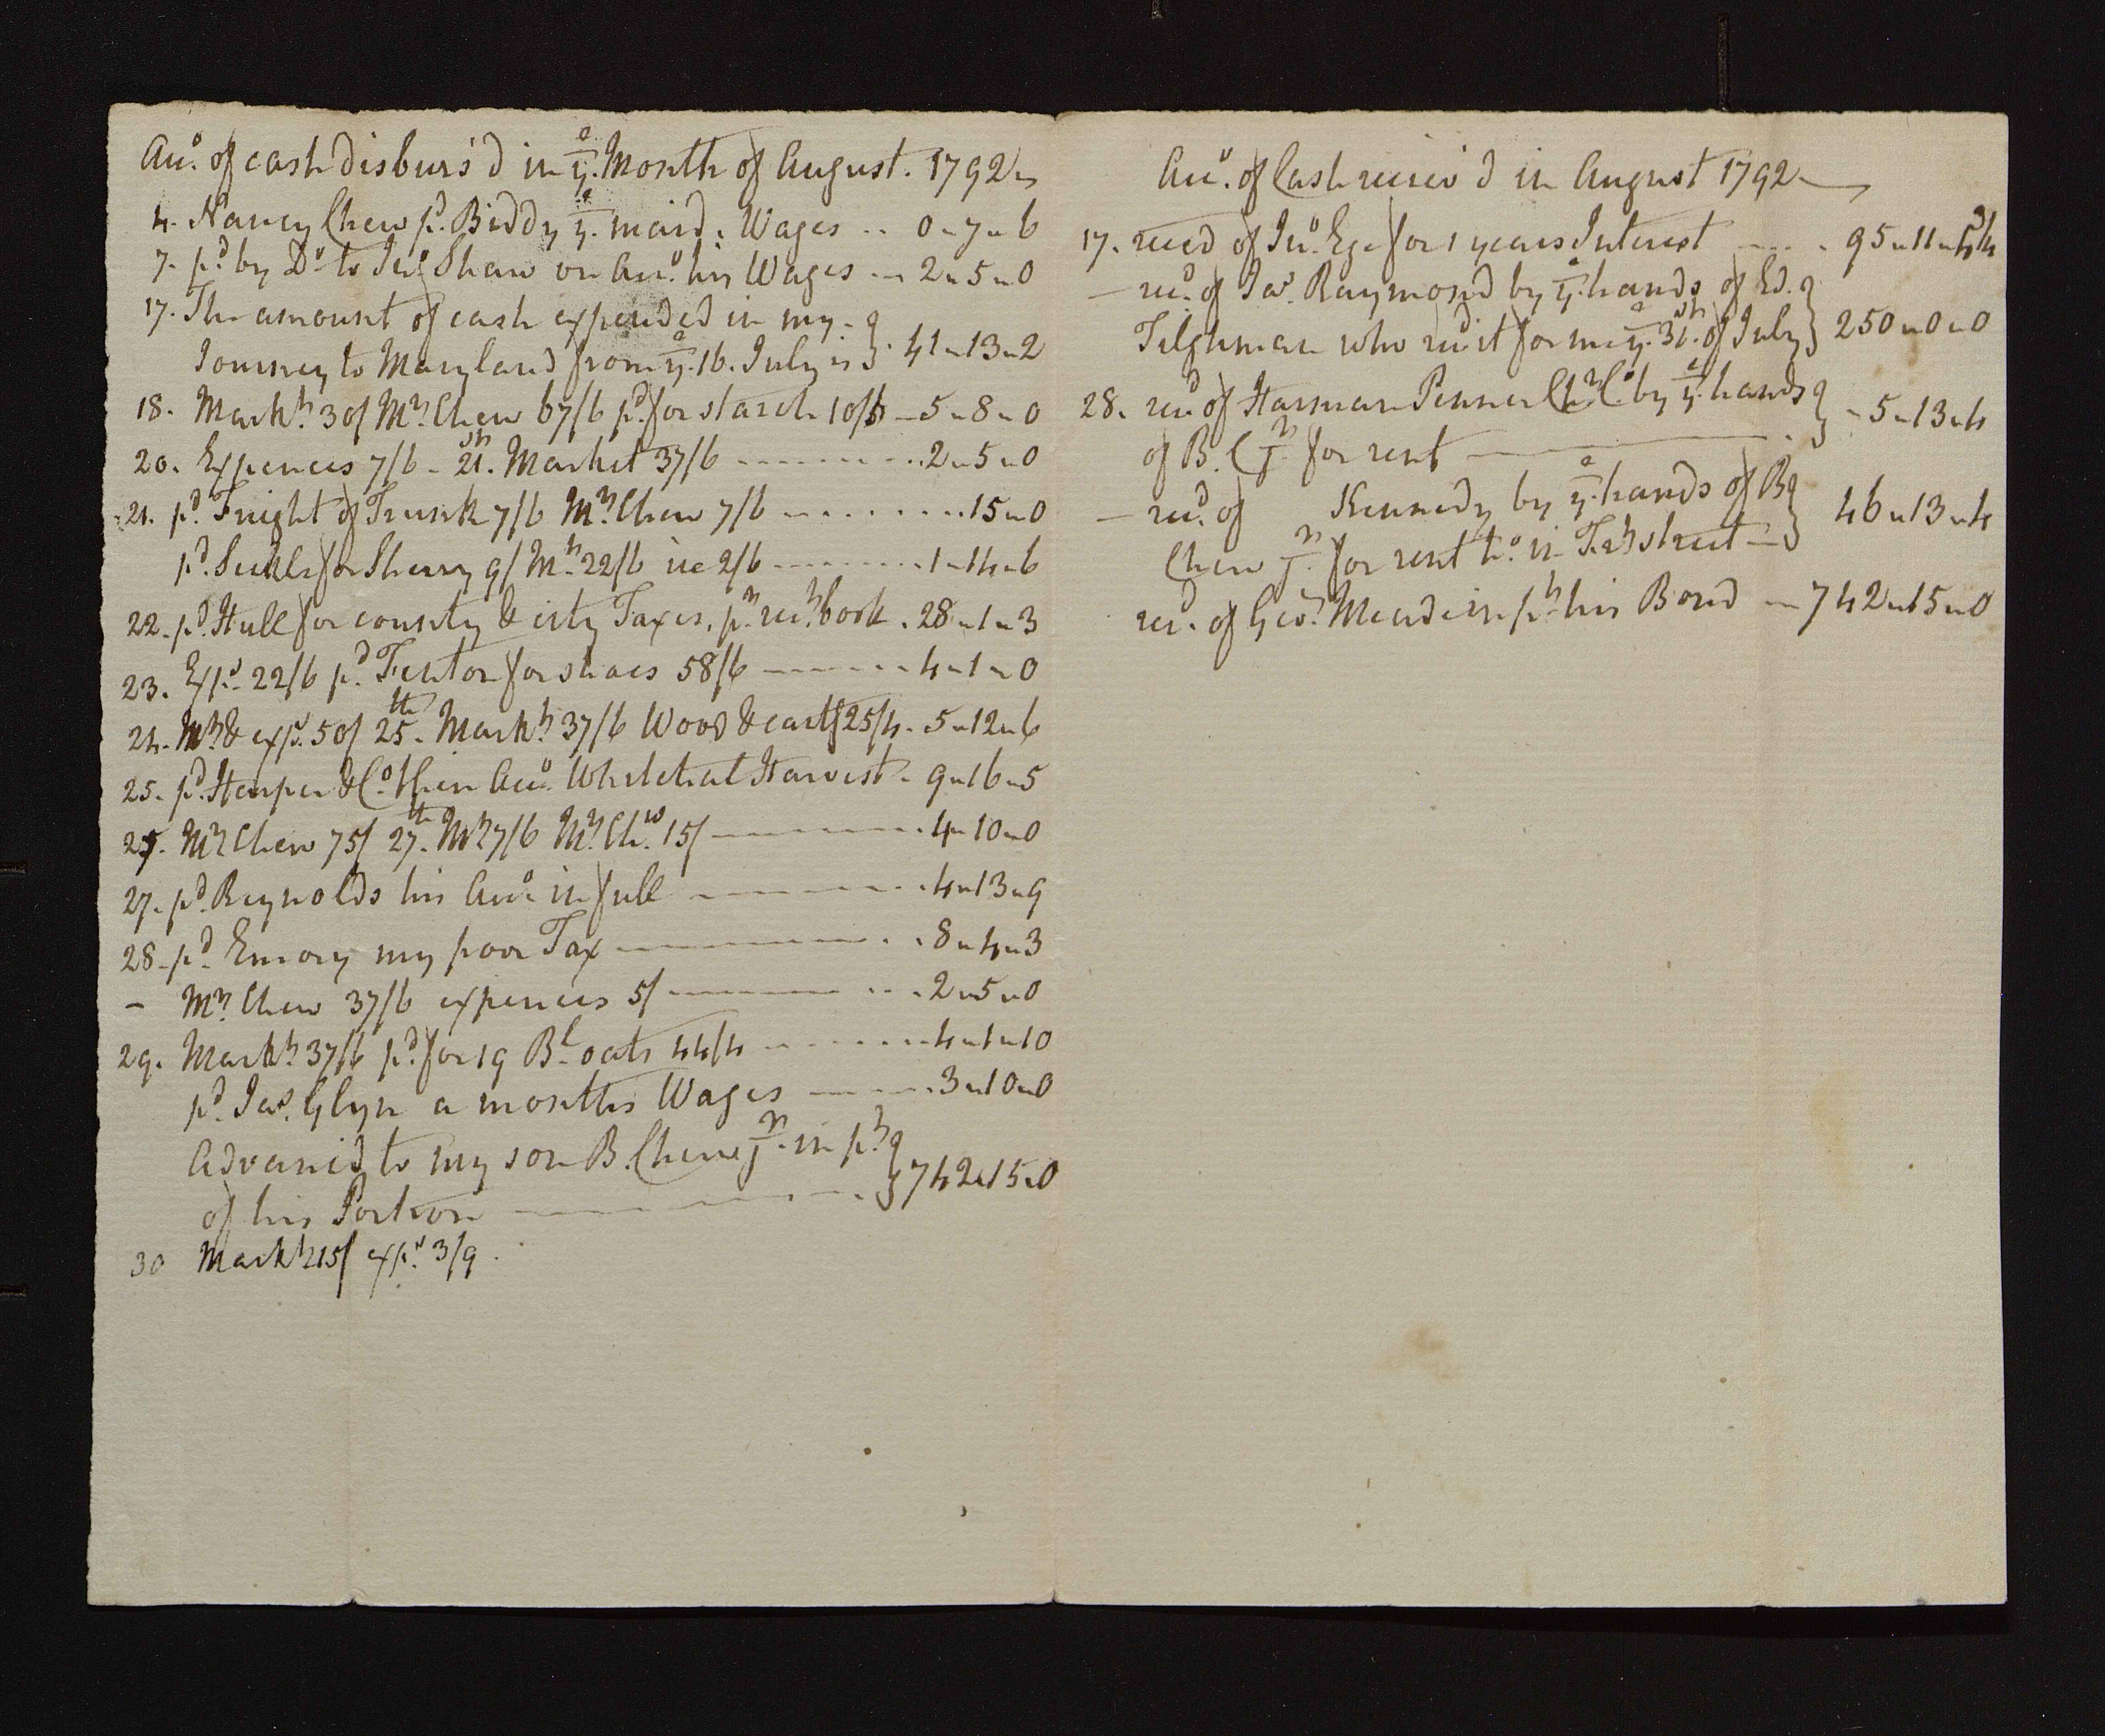 Acc.o of cash disburs'd in ye. Month of August. 1792
4. Nancy Chew pd. Biddy ye. maid. Wages .. 0 " 7 " 6
7. pd. by Do. to Jno. Shaw on Acco. his Wages - 2 " 5 " 0
17. The amount of cash expended in my -
Journey to Maryland from ye. 16. July is } 41 " 13 " 2
18. Markt. 30/ Mrs. Chew 67/6 pd. for starch 10/6 - 5 " 8 " 0
20. Expences 7/6 - 21st. Market 37/6 - - - - 2 " 5 " 0
21. pd. Freight of Trunk 7/6 Mrs. Chew 7/6 - - - - 15 " 0
pd. for Sherry 9/ Mrs. 22/6 ice 2/6 - - - - 1 " 14 " 6
22. pd. Hull for county & city Taxes, pr. rect. book . 28 " 1 " 3
23. Exps. 22/6 pd. Fenton for shoes 58/6 - - - - 4 " 1 " 0
24. Mt. & exps. 50/ 25th. Markt. 37/6 Wood & cartg 25/4 . 5 " 12 " 6
25. pd. Harper & Co. their Acco. Whitehal Harvest - 9 " 16 " 5
27. Mrs. Chew 75/ 27th. Mt. 7/6 Mrs. Chw. 15/ - - - - 4 " 10 " 0
27. pd. Reynolds his Acco. in full - - - - 4 " 13 " 9
28. pd. Emory my poor Tax - - - - 8 " 4 " 3
- Mrs. Chew 37/6 expences 5/ - - - - 2 " 5 " 0
29. Markt. 37/6 pd. for 19 Bl. oats 44/4 - - - - 4 " 1 " 10
pd. Jas. Glyn a months Wages - - - - 3 " 10 " 0
Advanced to my son B. Chew Jr. in pt.
of his Portion - - - - } 742 " 15 " 0
30 Markt. 15/ exps. 3/9 .
Acco. of Cash receiv'd in August 1792
17. recd of Jno. Ege for 1 years Interest - - - - 95 " 11 " 4
- recd. of Jas. Raymond by ye. hands of Ed.
Tilghman who recd it for me ye. 31st. of July } 250 " 0 " 0
28. recd. of Harman by ye. hands
of B. C Jr. for rent - - - - } - 5 " 13 " 4
- recd. of Kennedy by ye. hands of B
Chew Jr. for rent ho. in street - } 46 " 13 " 4
recd. of Geo. Meade in pt. his Bond - 742 " 15 " 0